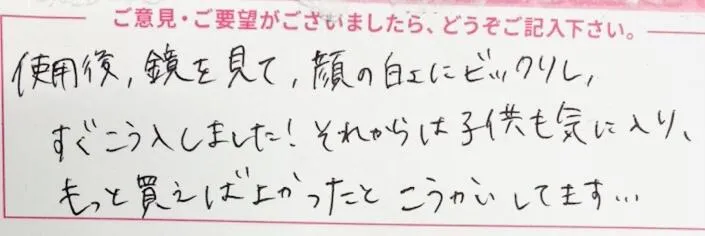 ご意見・ご要望がございましたら、どうぞご記入下さい。
使用後,鏡を見て,顔の白さにビックリし,
すぐこう入しました!それからは子供も気に入り、
もっと買えば上かったと こうかいしてます…